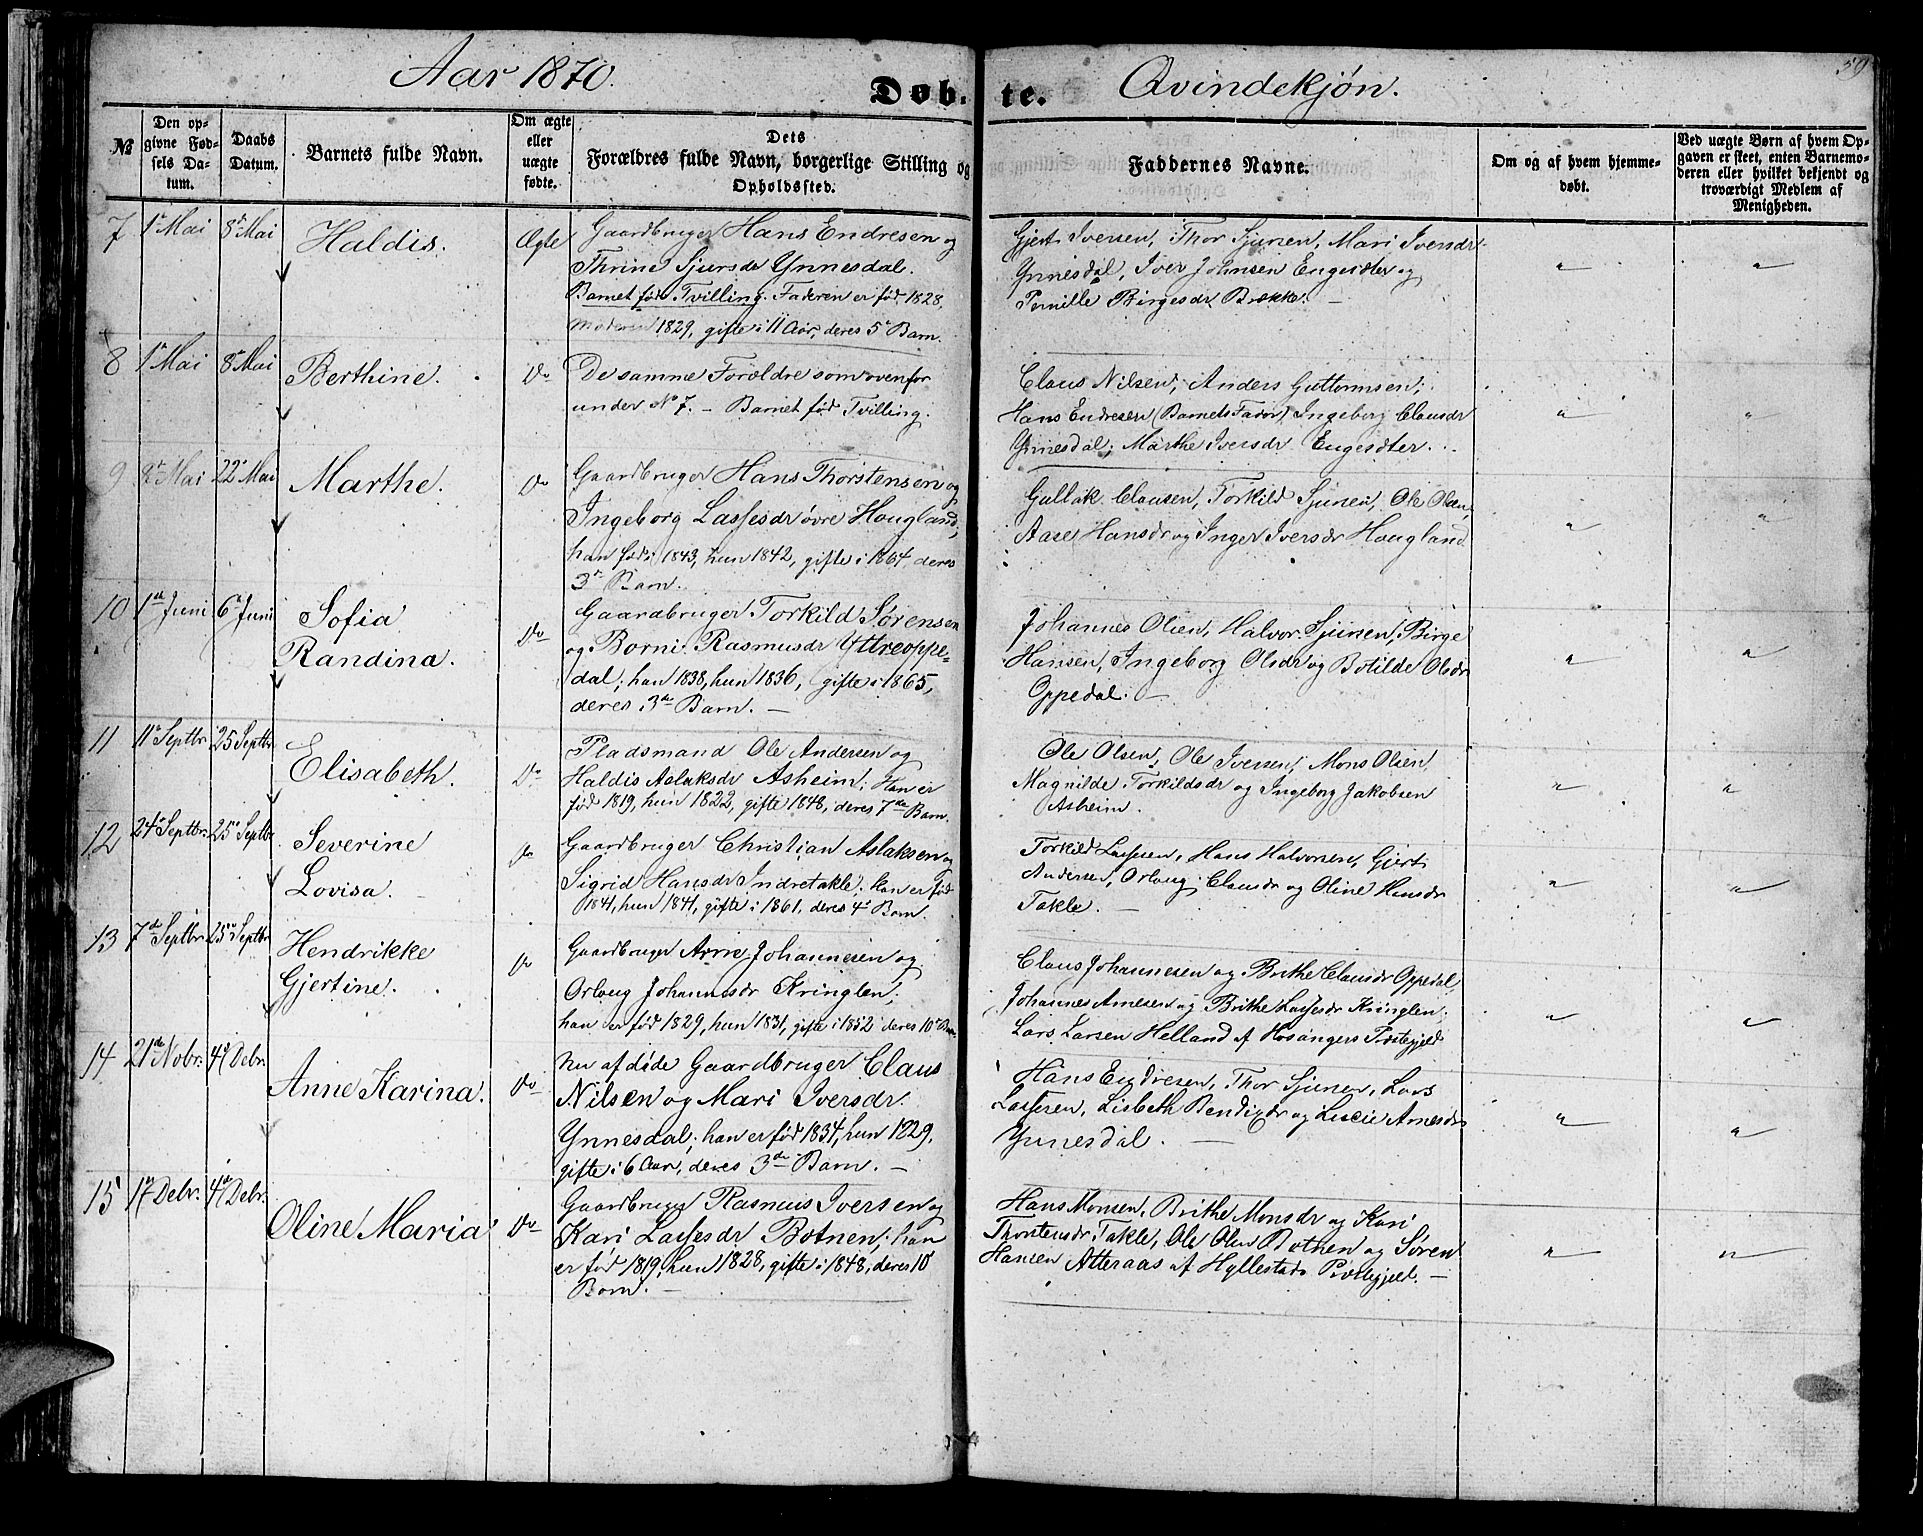 59
Aar 1870. Døb- te. Qvindekjøn.
№
Den op-
givne Fød-
sels Da-
tum.
Daabs
Datum.
Barnets fulde Navn.
Om ægte
eller
uægte
fødte.
Dets
Forældres fulde Navn, borgerlige Stilling og
Opholdssted.
Faddernes Navne.
Om og af hvem hjemme-
døbt.
Ved uægte Børn af hvem Op-
gaven er skeet, enten Barnemo-
deren eller hvilket bekjendt og
troværdigt Medlem af
Menigheden.
7 1ste Mai 8de Mai Haldis. Ægte
Gaardbruger Hans Endresen og
Thrine Sjursdr Ynnesdal.
Barnet født Tvilling. Faderen er født 1828,
Moderen 1829, gifte i 11 Aar, deres 5te Barn.
Gjert Iversen, Thor Sjursen, Mari Iversdr
Ynnesdal, Iver Johnsen Engesæter og
Pernille Birgesdr Brekke. —
" "
8 1ste Mai 8de Mai Berthine. Do
De samme Forældre som ovenfor
under No 7. — Barnet født Tvilling.
Claus Nilsen, Anders Guttormsen,
Hans Endresen (Barnets Fader), Ingeborg Clausdr
Ynnesdal, Marthe Iversdr Engesæter.
" "
9 Mai 22de Mai Marthe. Do
Gaardbruger Hans Thorstensen og
Ingeborg Lassesdr øvre Hougland,
han født i 1843, hun 1842, gifte i 1864, deres
3die Barn.
Gullak Clausen, Torkild Sjursen, Ole Olsen,
Aase Hansdr og Inger Iversdr Hougland.
" "
10 1ste Juni 6te Juni Sofia
Randina. Do
Gaardbruger Torkild Sørensen
og Borni Rasmusdr Yttreoppe-
dal; han 1838, hun 1836, gifte i 1865,
deres 3die Barn. —
Johannes Olsen, Halvor Sjursen, Birge
Hansen, Ingeborg Olsdr og Botilde Olsdr
Oppedal. —
" "
11 11te Septbr. 25 Septbr. Elisabeth. Do
Pladsmand Ole Andersen og
Haldis Aslaksdr Asheim; Han er
født 1819, hun 1822, gifte 1848, deres 7de Barn.
Ole Olsen, Ole Iversen, Mons Olsen,
Magnilde Torkildsdr og Ingeborg Jakobsen
Asheim.
" "
12 24de Septbr. 25de Septbr. Severine
Lovisa. Do
Gaardbruger Christian Aslaksen og
Sigrid Hansdr Indretakle; han er født
1841, hun 1841, gifte i 1861, deres 4de Barn.
Torkild Lassesen, Hans Halvorsen, Gjert
Andersen, Orlaug Clausdr og Oline Hansdr
Takle. —
" "
13 7de Septbr 25de Septbr Hendrikke
Gjertine. Do
Gaardbruger Arne Johannesen og
Orlaug Johannesdr Kringlen;
han er født 1829, hun 1831, gifte i 1852 deres 10de Barn.
Claus Johannesen og Brithe Clausdr Oppedal,
Johannes Arnesen og Brithe Lassesdr Kringlen,
Lars Larsen Helland af Hosangers Præstegjeld
" "
14 21de Nobr. 4de Debr. Anne Karina. Do
Nu afdøde Gaardbruger Claus
Nilsen og Mari Iversdr.
Ynnesdal; han er født 1834, hun 1829,
gifte i 6 Aar, deres 3die Barn. —
Hans Endresen, Thor Sjursen, Lars
Lassesen, Lisbeth Bendixdr og Arnesdr
Ynnesdal. —
" "
15 1ste Debr. 4de Debr. Oline Maria Do
Gaardbruger Rasmus Iversen og
Kari Lassesdr Botnen; han
er født 1819, hun 1828, gifte i 1848, deres 10de
Barn. —
Hans Monsen, Brithe Monsdr og Kari
Thorstensdr Takle, Ole Olsen Bothen og Søren
Hansen Atteraas af Hyllestads Præstegjeld. —
" "